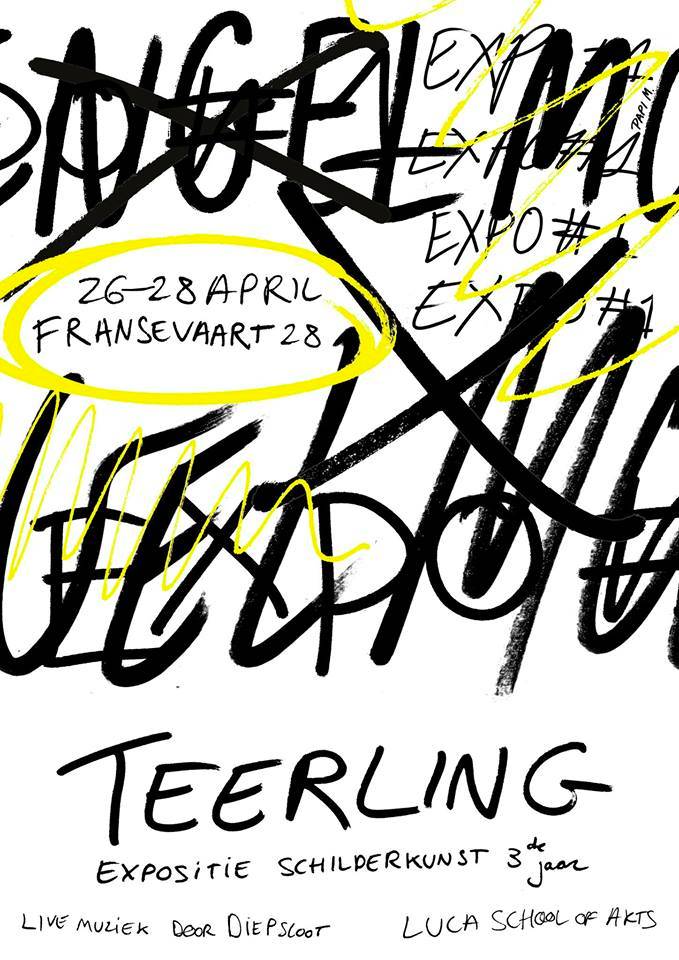 EXPO #1
EXPO #1
PAPI M.
EXPO #1
EXPO #1
26-28 APRIL
FRANSEVAART 28
EXPO #
TEERLING
EXPOSITIE SCHILDERKUNST 3de jaar
LIVE MUZIEK DOOR DIEPSLOOT
LUCA SCHOOL OF ARTS